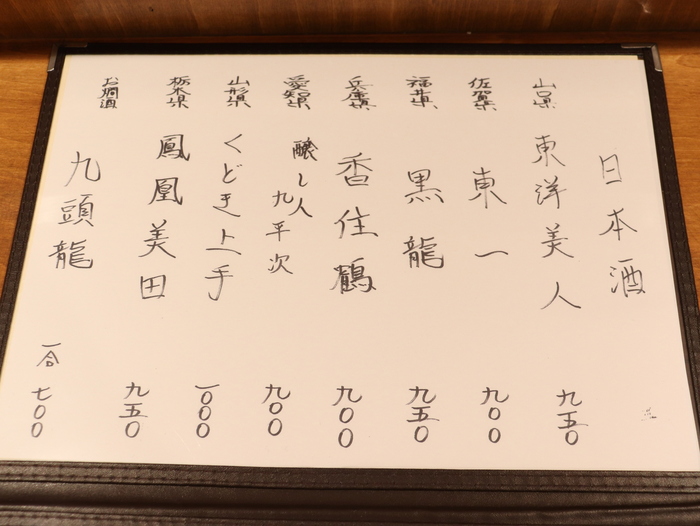 日本酒
山口県 東洋美人 九五0
佐賀県 東一 九00
福井県 黒龍 九五0
兵庫県 香住鶴 九00
愛知県 醸し人九平次 九00
山形県 くどき上手 一000
栃木県 鳳凰美田 九五0
お燗酒 九頭龍 一合 七00